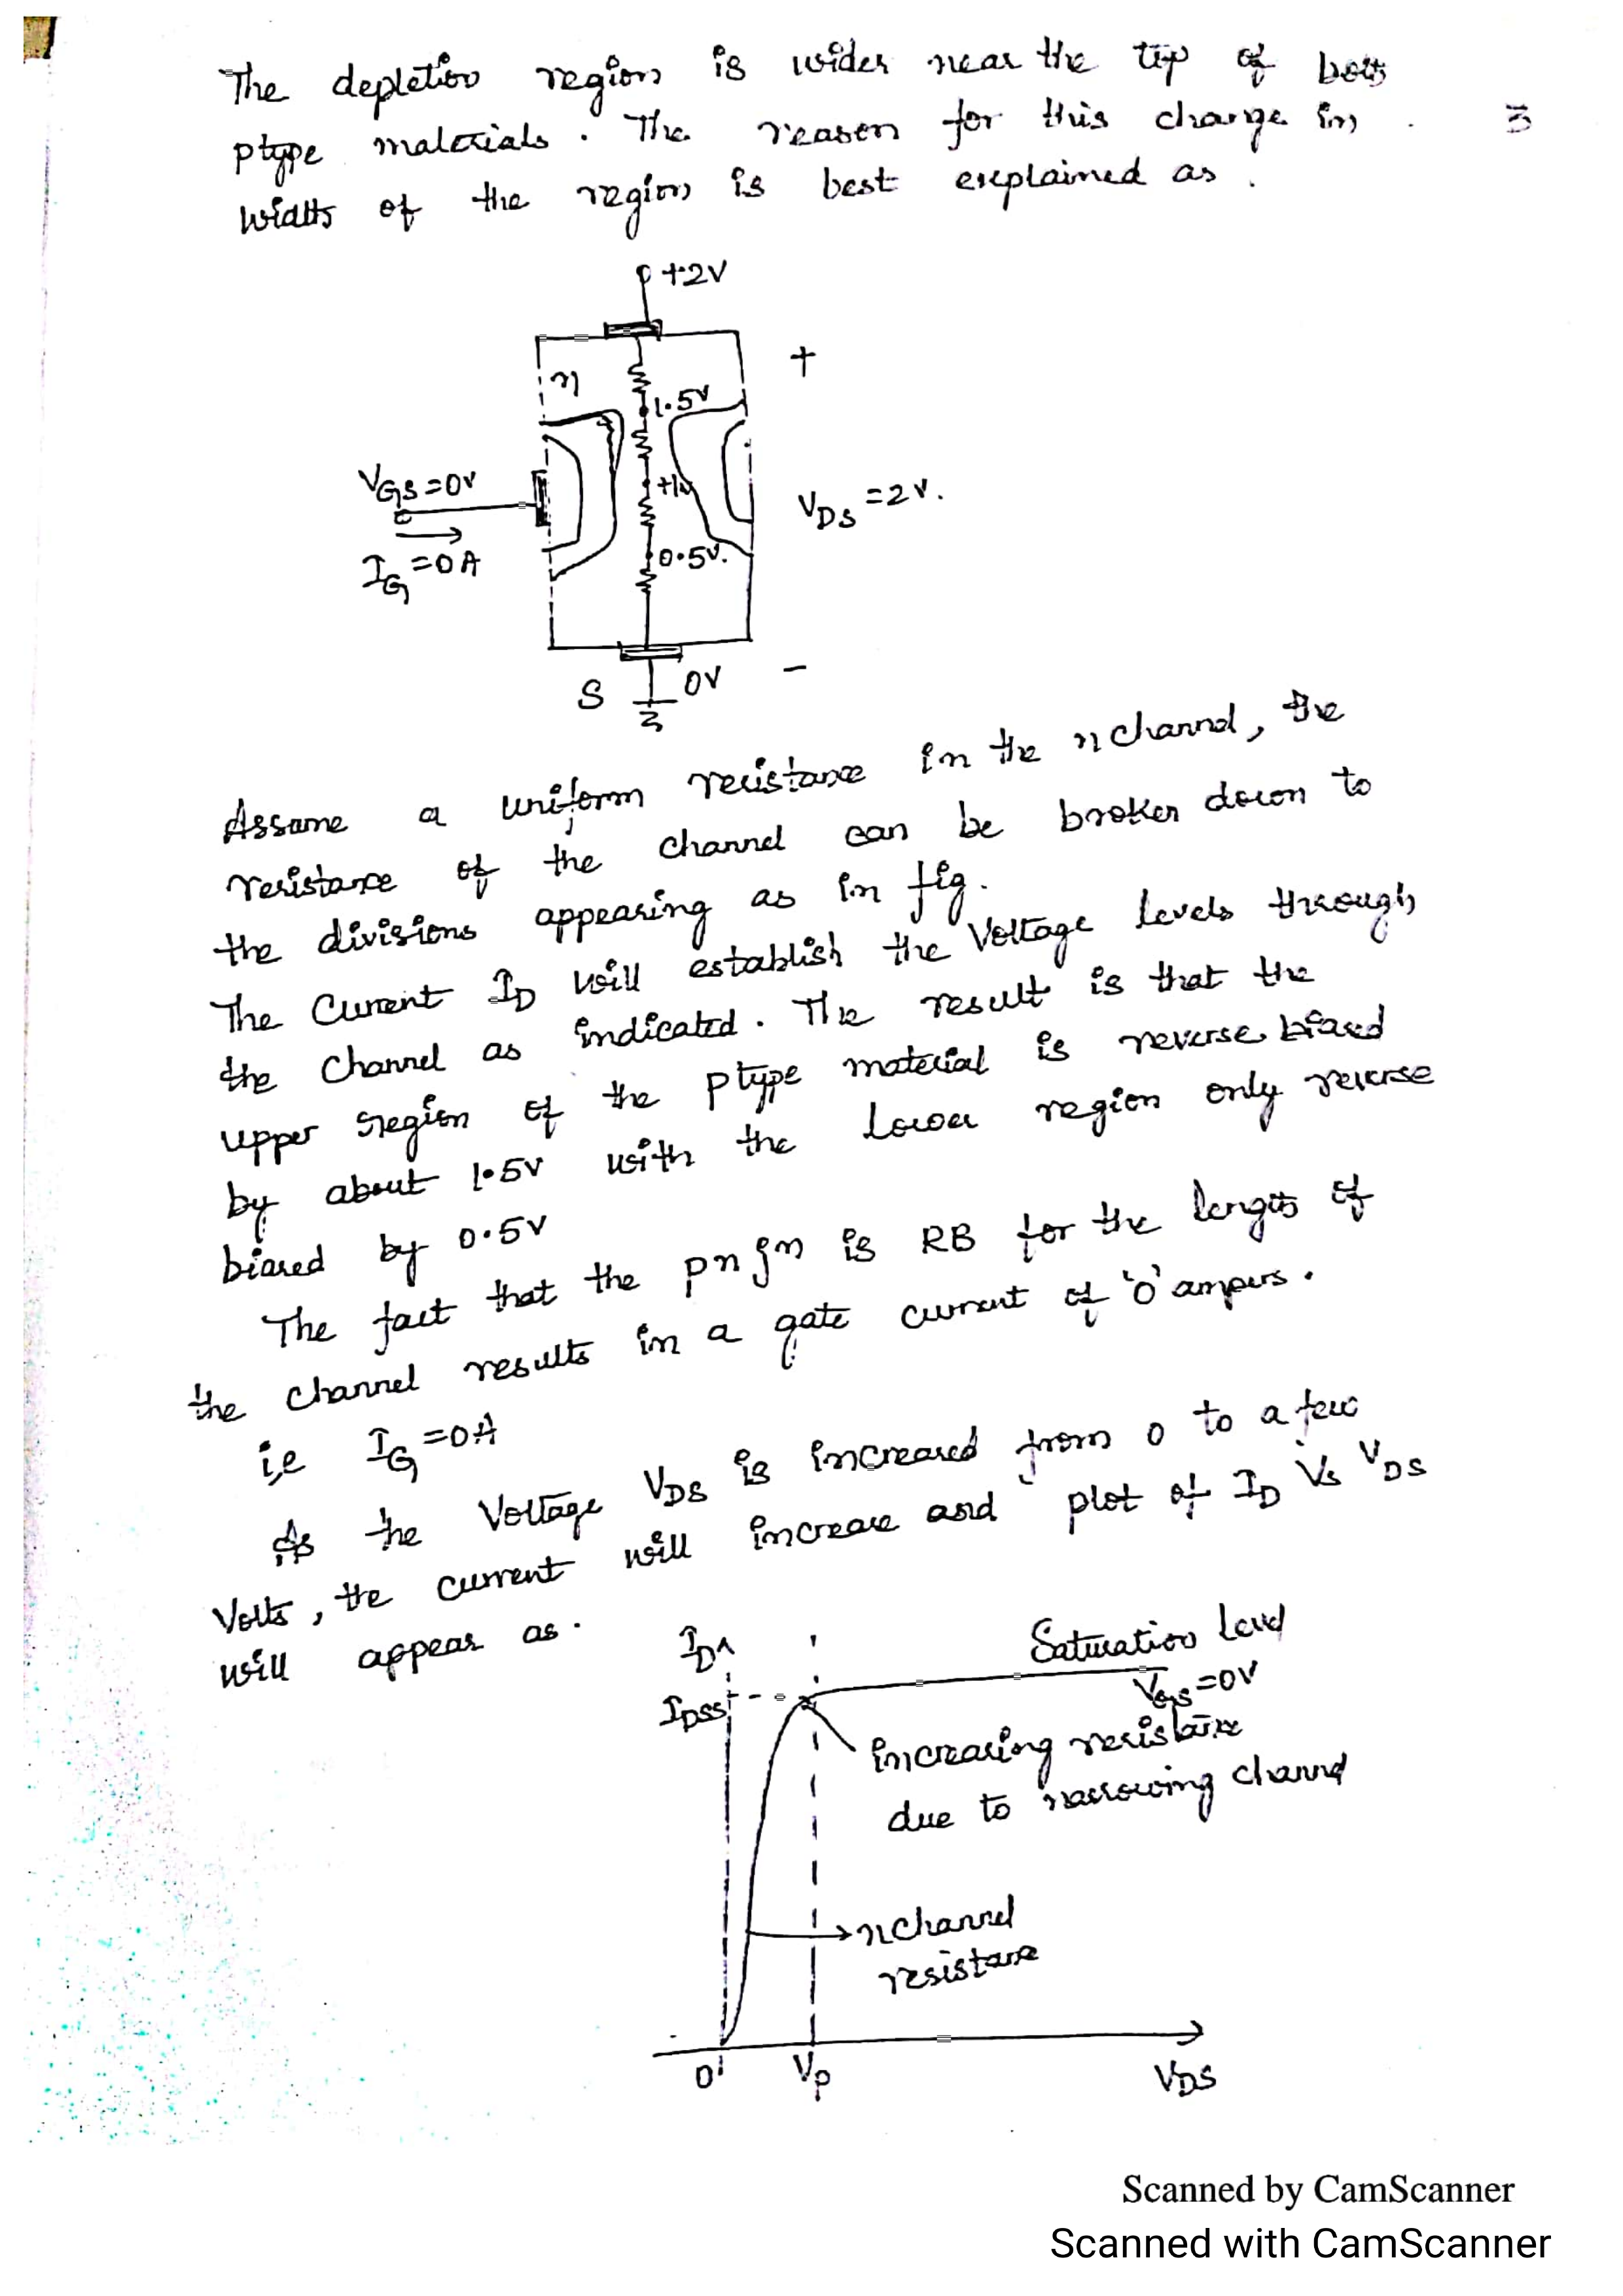 The depletion region is wider near the tip of both
ptype materials. The reason for this change in
3
width of the region is best explained as.
+2V
n
+
1.5V
VGS=0V
+1V
VDS=2V.
IG=0A
0.5V.
S
0V
-
Assume a uniform resistance in the n channel, the
resistance of the channel can be broken down to
the divisions appearing as in fig.
The Current ID will establish the Voltage levels through
the Channel as indicated. The result is that the
upper region of the ptype material is reverse biased
by about 1.5V with the lower region only reverse
biased by 0.5V
The fact that the pn jn is RB for the length of
the channel results in a gate current of '0' ampers.
i,e IG=0A
As the Voltage VDS is increased from 0 to a few
Volts, the current will increase and plot of ID Vs VDS
will appear as.
ID
Saturation Level
IDSS
VGS=0V
increasing resistance
due to narrowing channel
n channel
resistane
0
VP
VDS
Scanned by CamScanner
Scanned with CamScanner